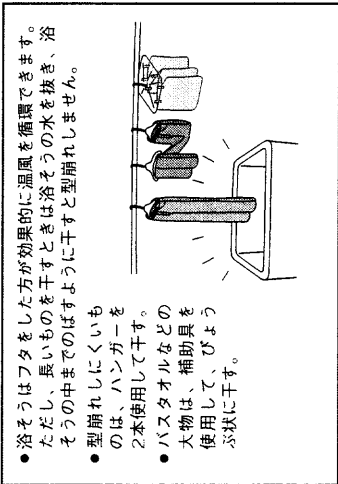 ●浴そうはフタをした方が効果的に温風を循環できます。
ただし、長いものを干すときは浴そうの水を抜き、浴
そうの中までのばすように干すと型崩れしません。
●型崩れしにくいも
のは、ハンガーを
2本使用して干す。
●バスタオルなどの
大物は、補助具を
使用して、びょう
ぶ状に干す。